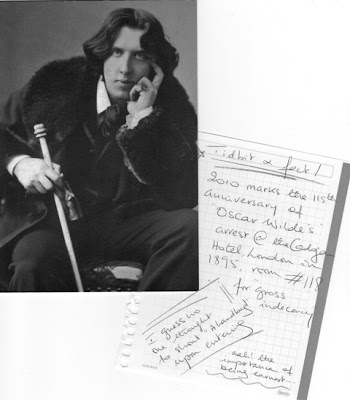 x tidbit & fact!
2010 marks the 115th
anniversary of
"Oscar Wilde's"
arrest @ the Cadogan
Hotel, London in
1895, room #118
for gross
indecency
I guess no
one thought
to shout 'A handbag'
upon entering
ah! the
importance of
being earnest...